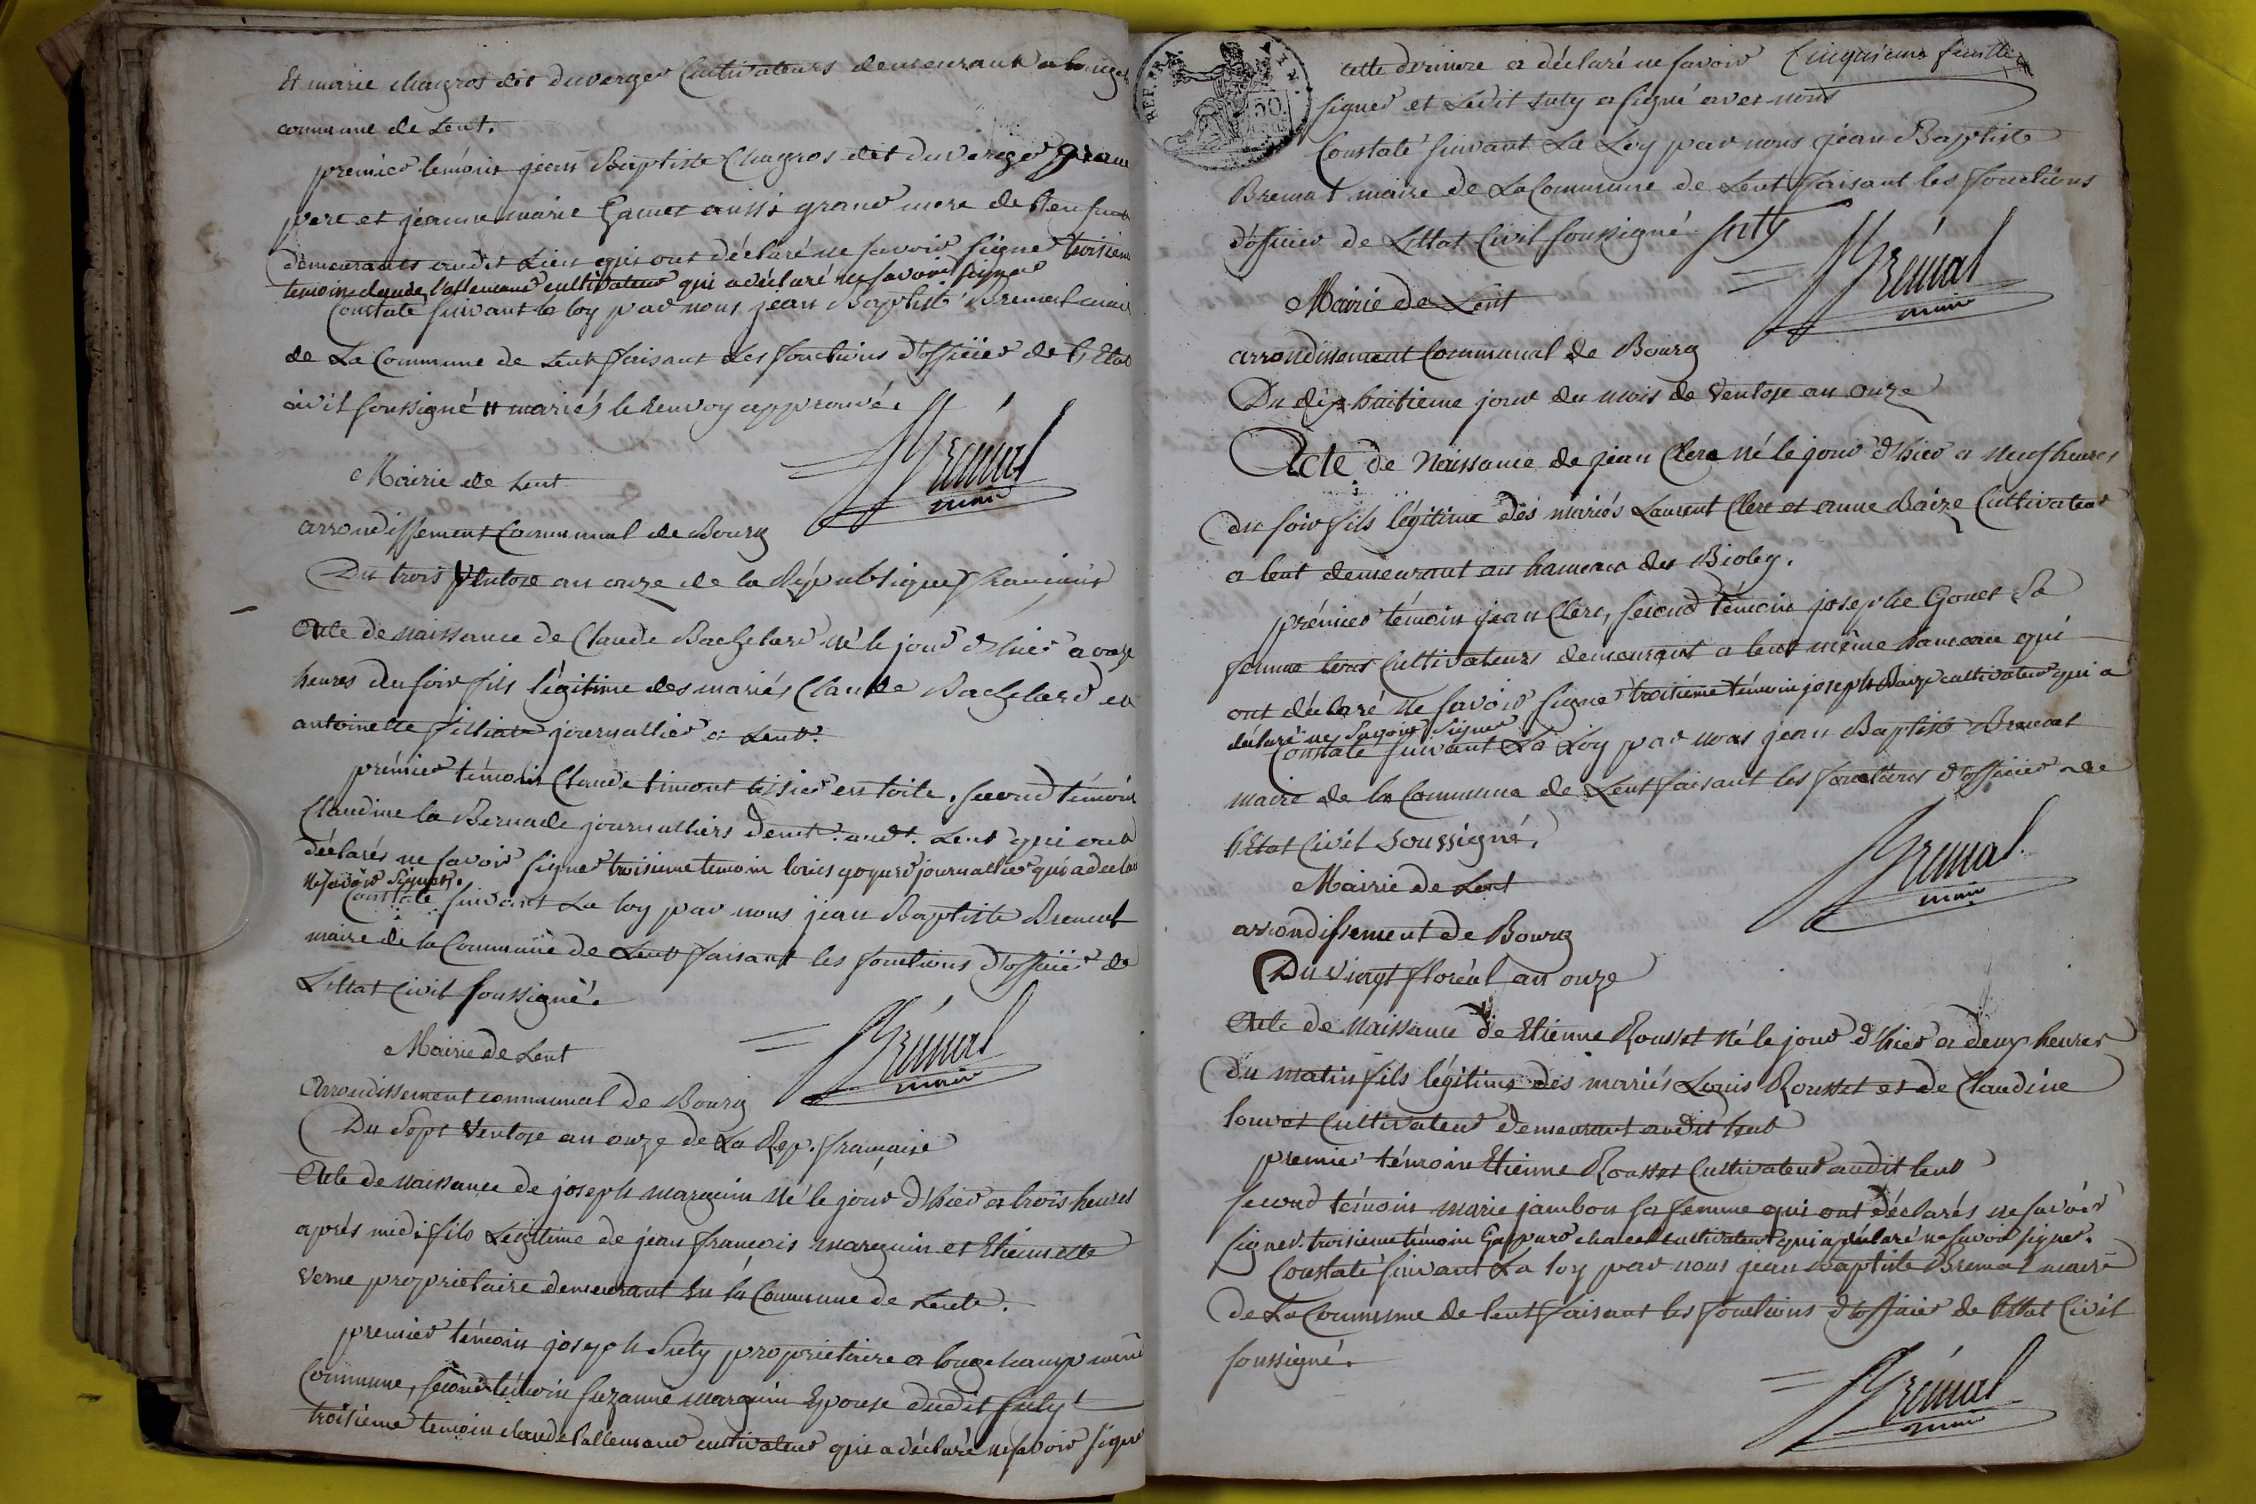 Et marie chagros dit duverger Cultivateurs demeurant a
commune de Lent.
premier temoin jean Baptiste Chagros dit duverger grand
pere et jeanne marie Gamet aussi grand mere de l'enfant
demeurants audit Lieu qui ont déclaré ne savoir signer troisieme
temoin claude l'allemand cultivateur qui a déclaré ne savoir signer
Constaté suivant la loy par nous jean Baptiste Bremal maire
de La Commune de Lent faisant Les fonctions d'officier de l'Etat
civil soussigné # mariés le renvoy approuvé.
Brémal
maire
Mairie de Lent
arrondissement Communal de Bourg
Du trois Ventose an onze de la République francaise
Acte de naissance de Claude Bachelard né le jour d'hier a onze
heures du soir fils légitime des mariés Claude Bachelard et
antoinette filliat journallier a Lent.
prémier témoin Claude timont tissier en toile. second témoin
Claudine la Bernade journalliers demt. audt. Lent qui ont
déclarés ne savoir signer troisieme temoin louis goyard journallier qui a declaré
ne savoir signer.
Constaté suivant La loy par nous jean Baptiste Bremal
maire de la Commune de Lent faisant les fonctions d'officier de
L'Ettat Civil soussigné.
Brémal
maire
Mairie de Lent
Arrondissement communal de Bourg
Du Sept Ventose an onze de La Rep. francaise
Acte de naissance de joseph marguin né le jour d'hier a trois heures
aprés midi fils Légitime de jean francois marguin et Etiennette
Verne proprietaire demeurant en la Commune de Lent.
premier témoin joseph Suty proprietaire a longchamp même
Commune, second témoin suzanne marguin Epouse dudit Suty
troisieme temoin claude l'allemand cultivateur qui a déclaré ne savoir signer
REP. FRA.
50
cette derniere a déclaré ne savoir Cinquieme feuille
signer et Ledit Suty a signé avec nous
Constaté suivant La Loy par nous jean Baptiste
Bremal maire de La Commune de Lent faisant les fonctions
d'officier de L'Ettat Civil soussigné Suty
Brémal
maire
Mairie de Lent
arrondissement Communal de Bourg
Du dix huitieme jour du mois de Ventose an onze
Acte de Naissance de jean Clerc né le jour d'hier a neuf heures
du soir fils légitime des mariés Laurent Clerc et anne Baize Cultivateur
a lent demeurant au hameau du Bioley.
prémier témoin jean Clerc, second témoin josephe Gonet Sa
femme tous Cultivateurs demeurant a lent même hameau qui
ont déclaré ne savoir signer troisieme témoin joseph Baize cultivateur qui a
déclaré ne savoir signer
Constaté suivant La Loy par nous jean Baptiste Bremal
maire de la Commune de Lent faisant les fonctions d'officier de
l'Etat Civil soussigné,
Brémal
maire
Mairie de Lent
arrondissement de Bourg
Du vingt floréal an onze
Acte de naissance de Etienne Rousset né le jour d'hier a deux heures
Du matin fils légitime des mariés Louis Rousset et de Claudine
louvet Cultivateur demeurant audit lent
premier témoin Etienne Rousset Cultivateur audit lent
second témoin marie jambon sa femme qui ont déclarés ne savoir
signer. troisieme témoin Gaspard chanel cultivateur qui a déclaré ne savoir signer.
Constaté suivant La loy par nous jean Baptiste Bremal maire
de La Commune de lent faisant les fonctions d'officier de l'Ettat Civil
soussigné.
Brémal
maire